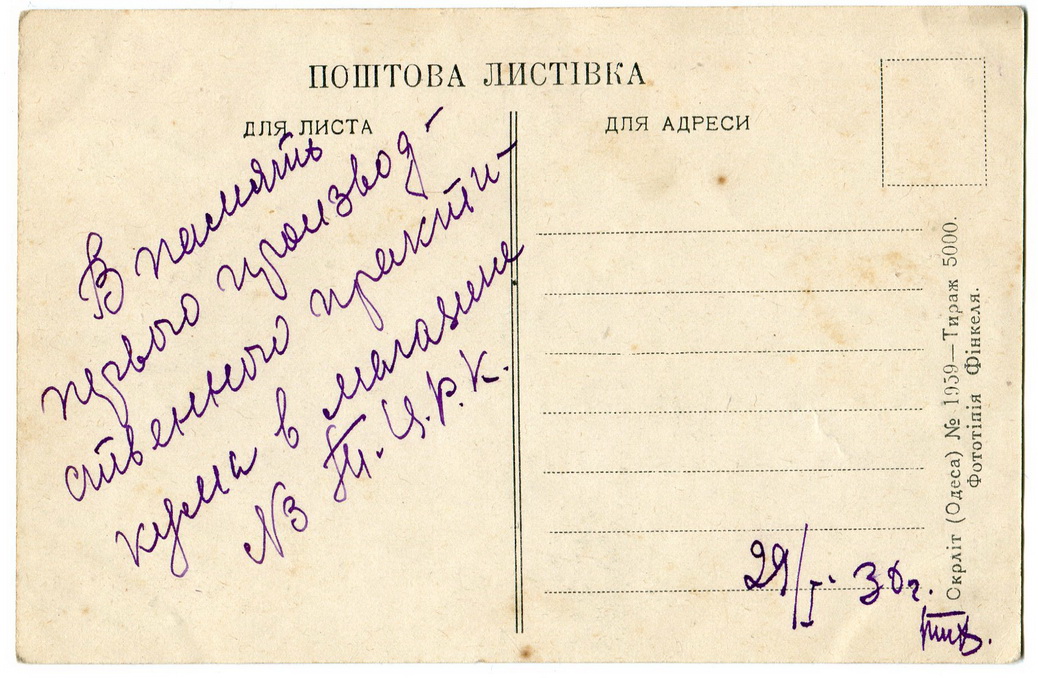 ПОШТОВА ЛИСТІВКА
ДЛЯ ЛИСТА
ДЛЯ АДРЕСИ
В память
первого производ-
ственного практи-
кума в магазине
№3 Т.Ц.Р.К.
29/I. 30г.
Окрліт (Одеса) № 1959—Тираж 5000.
Фототіпія Фінкеля.